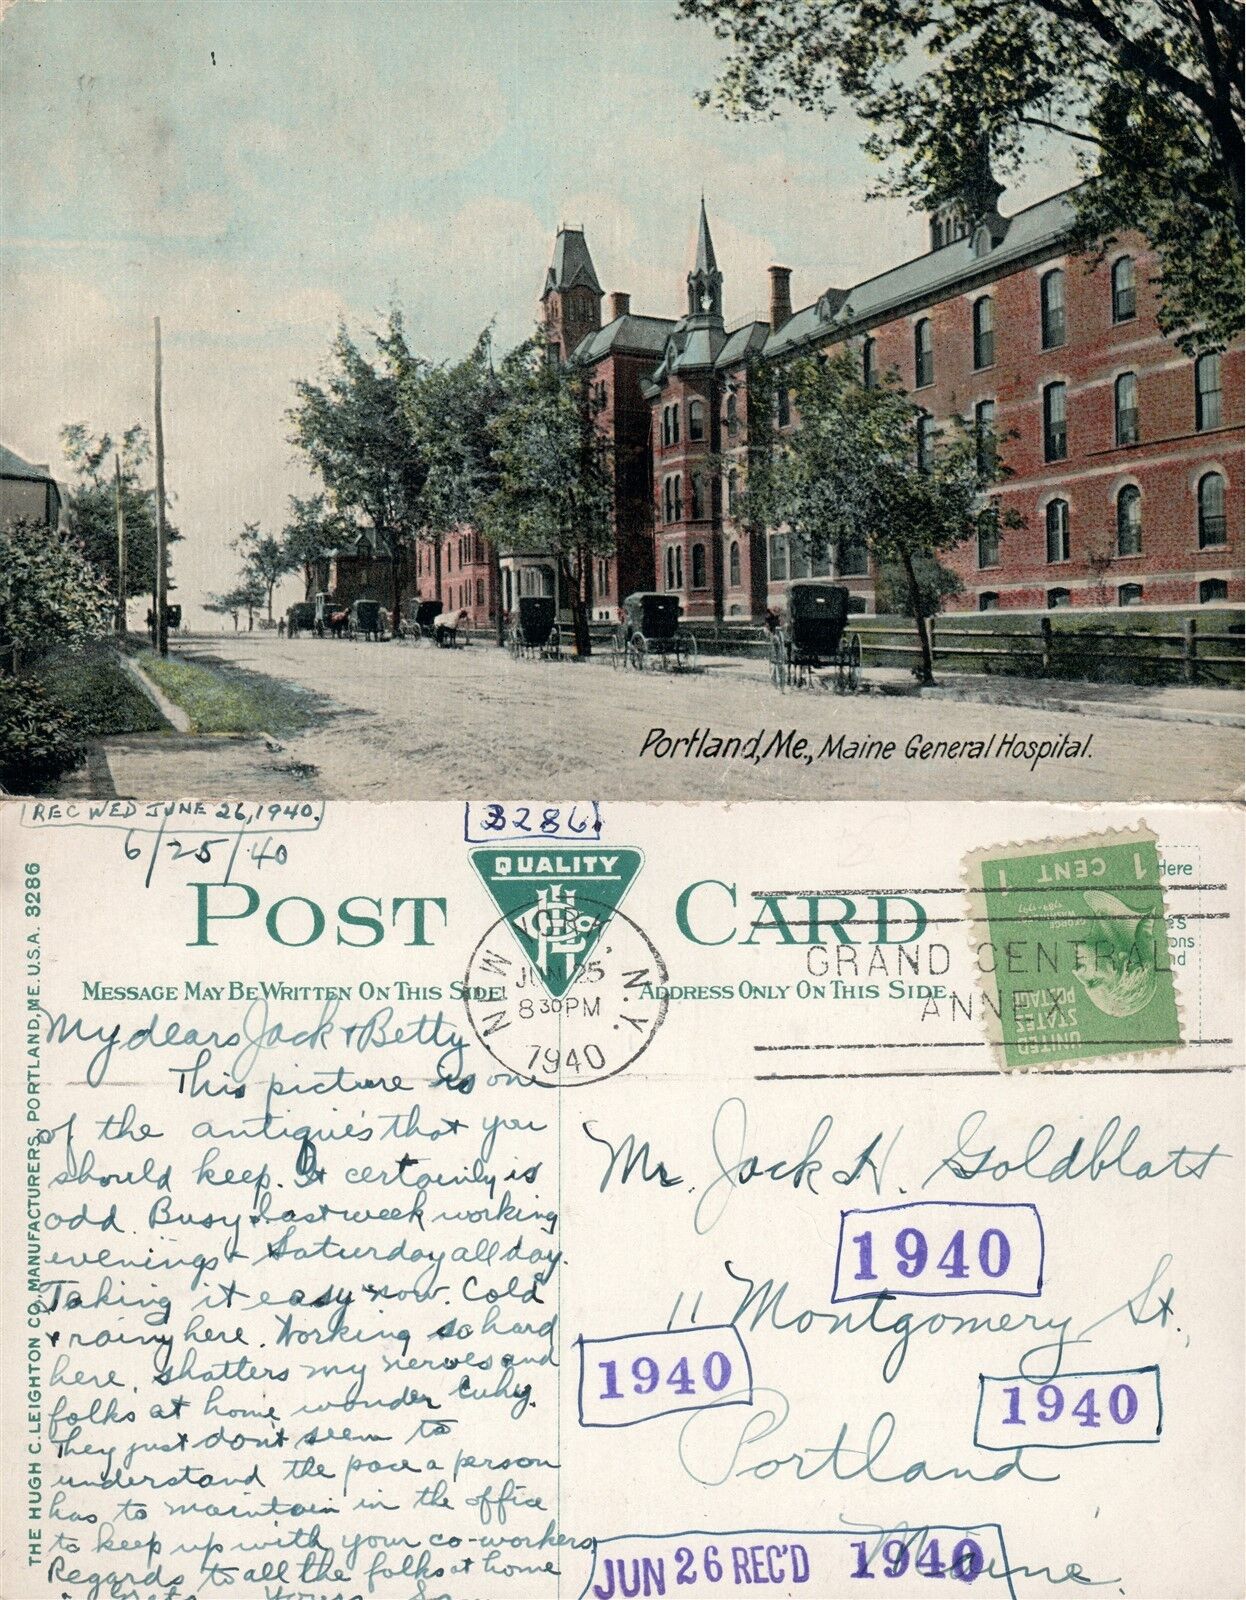 Portland, Me., Maine General Hospital.
REC WED JUNE 26, 1940.
6/25/40
3286.
QUALITY
POST CARD
Here
MESSAGE MAY BE WRITTEN ON THIS SIDE
ADDRESS ONLY ON THIS SIDE.
NEW YORK, N.Y.
JUN 25
8 30 PM
1940
GRAND CENTRAL
ANNEX
1 CENT 1
UNITED
STATES
POSTAGE
THE HUGH C. LEIGHTON CO., MANUFACTURERS, PORTLAND, ME. U.S.A. 3286
My dears Jack & Betty
This picture is one
of the antiques that you
should keep. It certainly is
odd. Busy last week working
evenings & Saturday all day.
Taking it easy now. Cold
& rainy here. Working so hard
here, shatters my nerves and
folks at home wonder why.
They just don't seem to
understand the pace a person
has to maintain in the office
to keep up with your co-workers.
Regards to all the folks at home
Mr. Jack H. Goldblatt
1940
11 Montgomery St.,
1940
1940
Portland
Maine.
JUN 26 REC'D 1940